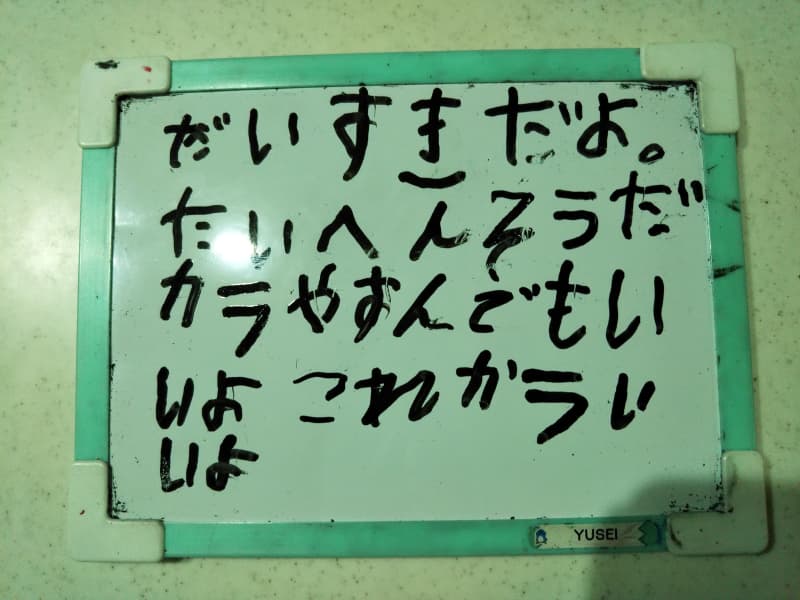 だいすきだよ。
たいへんそうだ
カラやすんでもい
いよ これからい
いよ
YUSEI